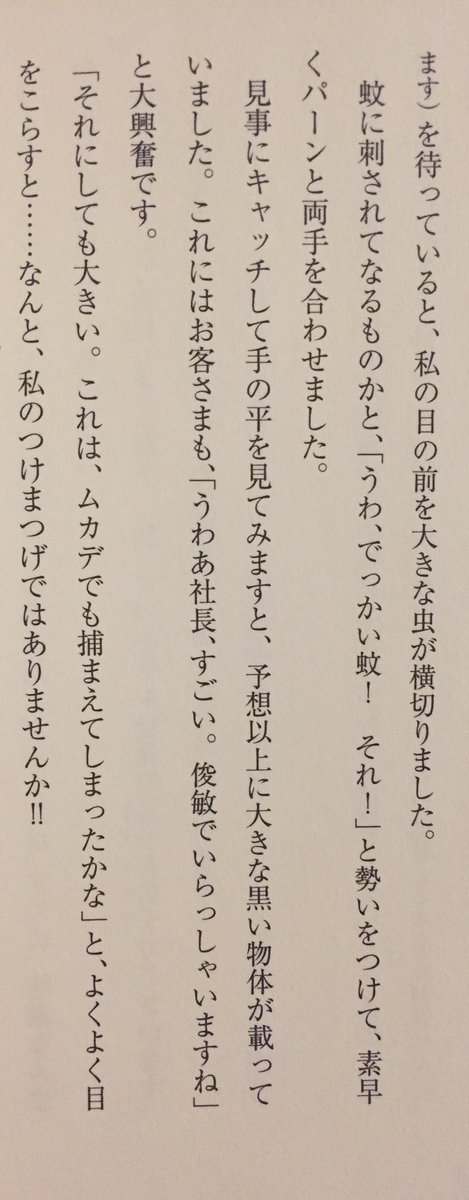 ます）を待っていると、私の目の前を大きな虫が横切りました。
　蚊に刺されてなるものかと、「うわ、でっかい蚊！　それ！」と勢いをつけて、素早
くパーンと両手を合わせました。
　見事にキャッチして手の平を見てみますと、予想以上に大きな黒い物体が載って
いました。これにはお客さまも、「うわあ社長、すごい。俊敏でいらっしゃいますね」
と大興奮です。
「それにしても大きい。これは、ムカデでも捕まえてしまったかな」と、よくよく目
をこらすと……なんと、私のつけまつげではありませんか!!